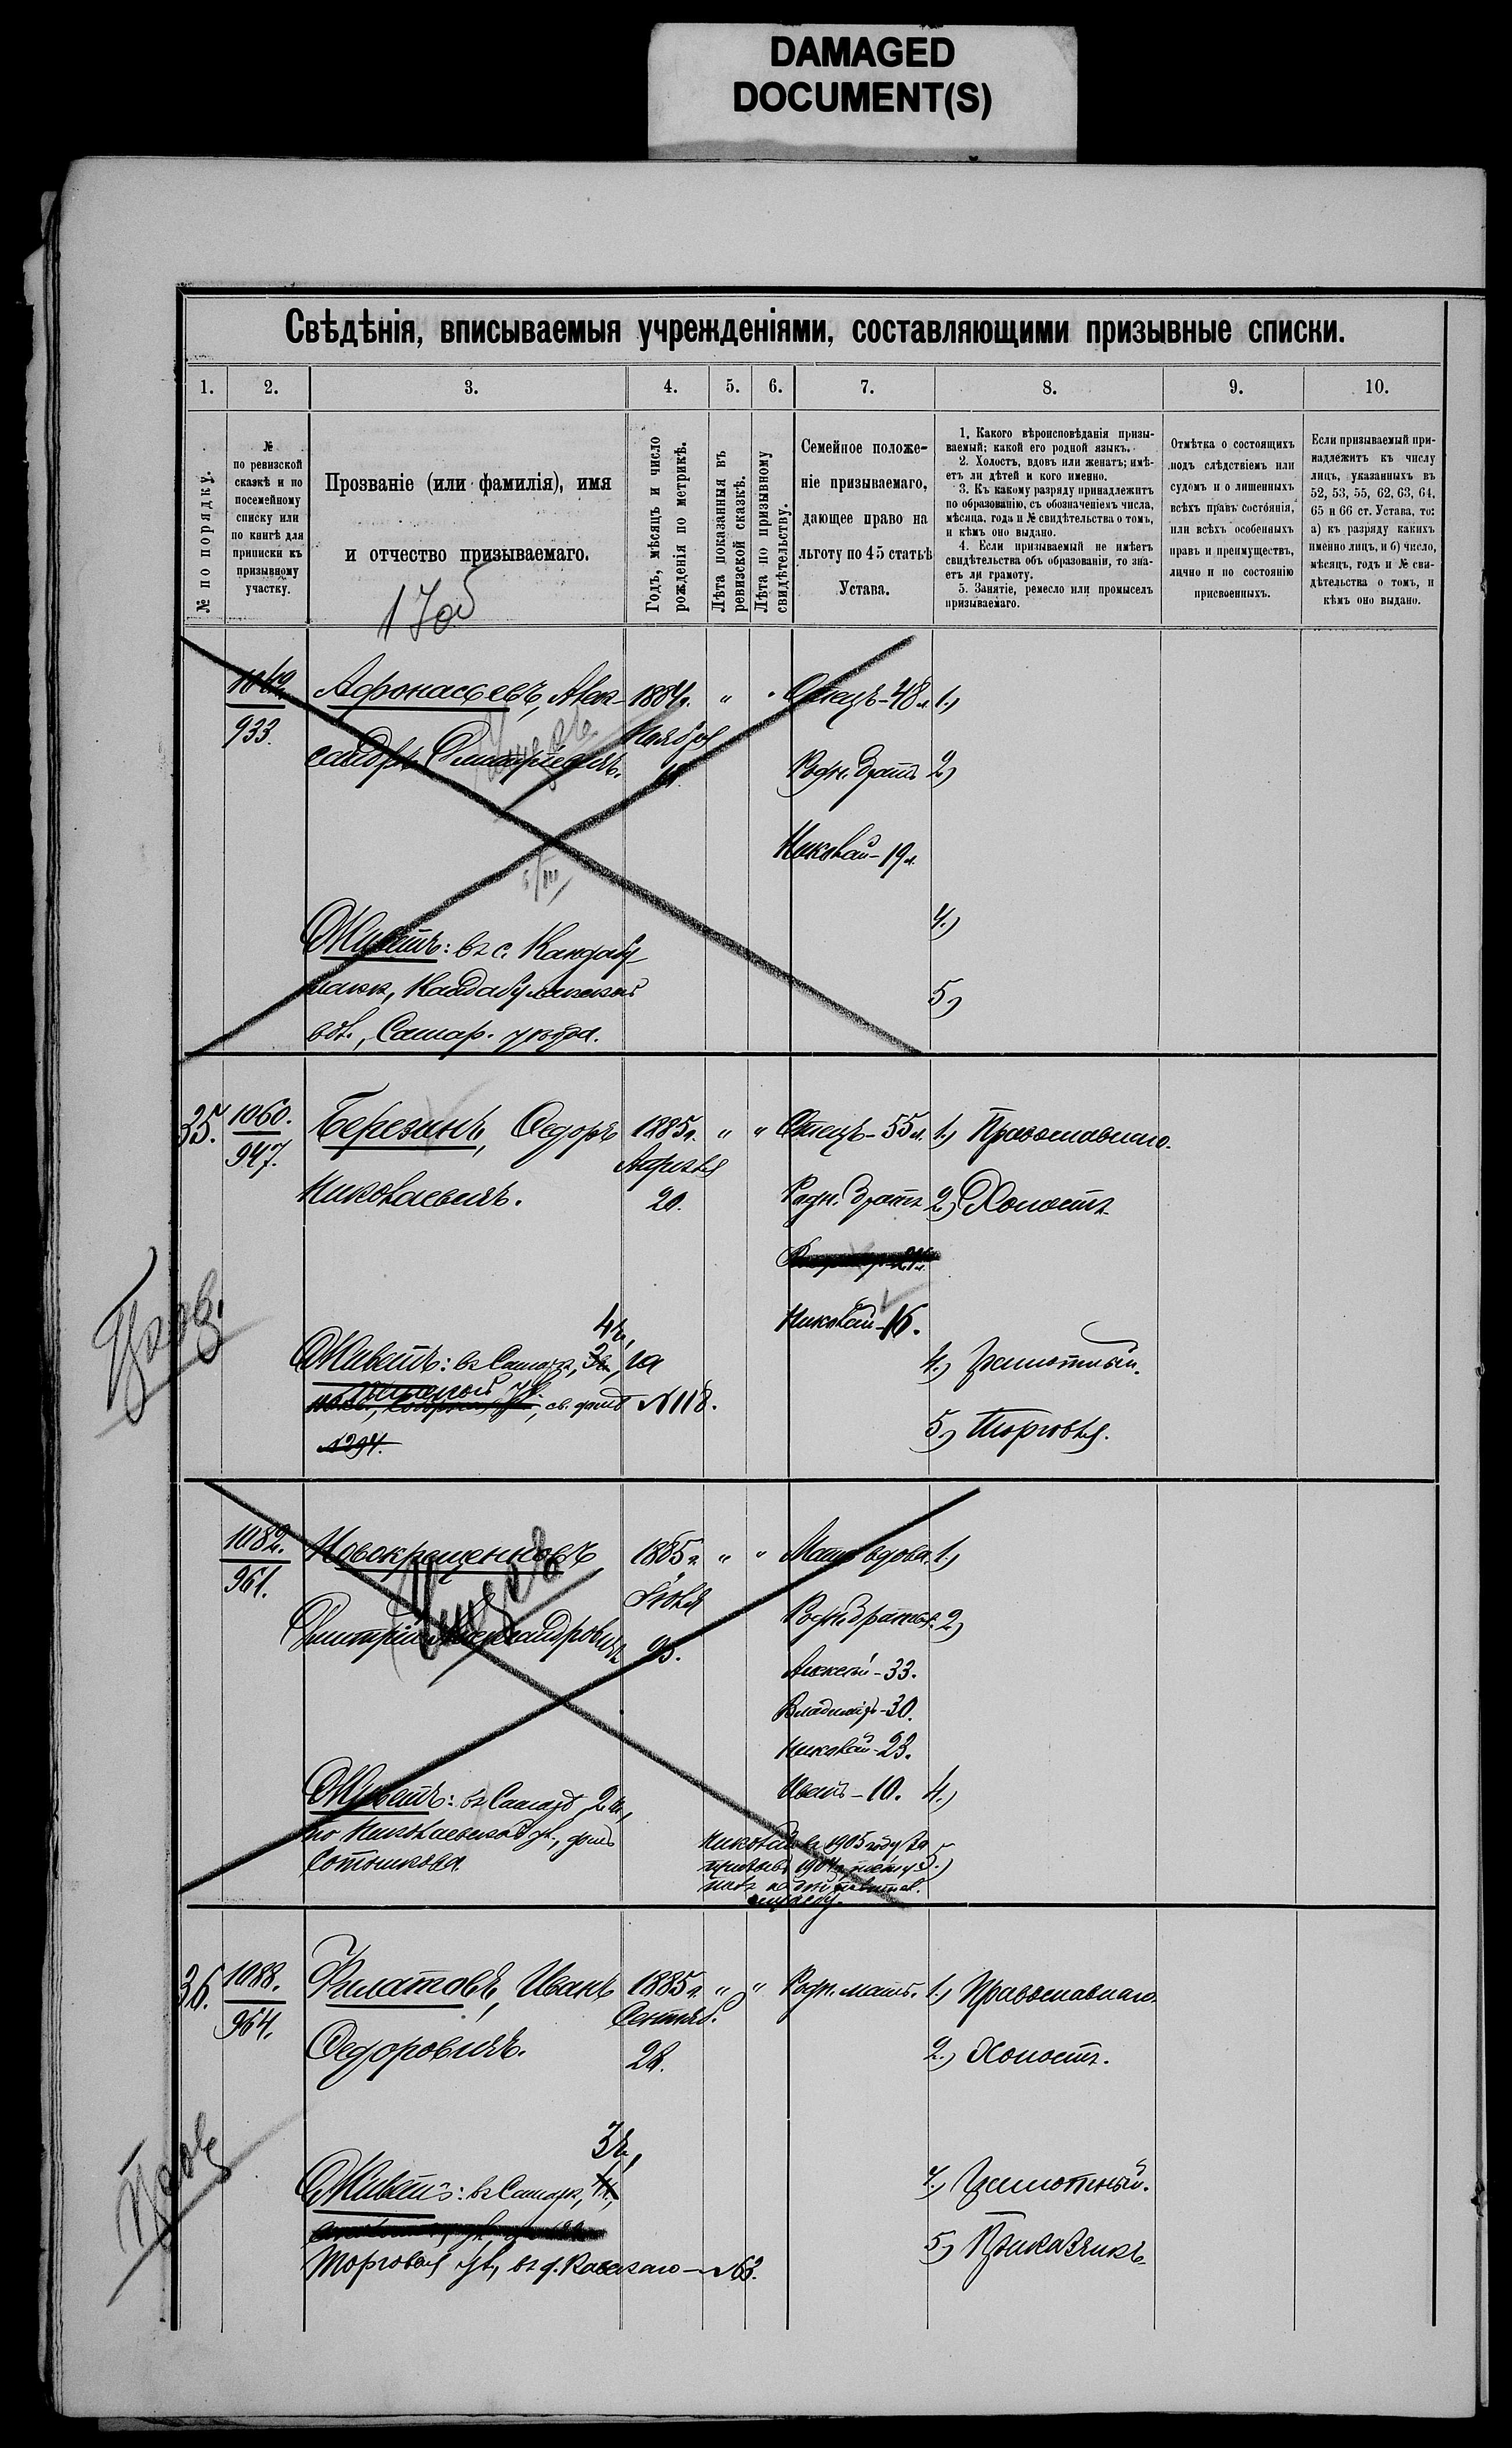 DAMAGED
DOCUMENT(S)
Свѣдѣнія, вписываемыя учрежденіями, составляющими призывные списки.
1. 2. 3. 4. 5. 6. 7. 8. 9. 10.
№ по порядку.
№
по ревизской
сказкѣ и по
посемейному
списку или
по книгѣ для
приписки къ
призывному
участку.
Прозваніе (или фамилія), имя
и отчество призываемаго.
Годъ, мѣсяцъ и число
рожденія по метрикѣ.
Лѣта показанныя въ
ревизской сказкѣ.
Лѣта по призывному
свидѣтельству.
Семейное положе-
ніе призываемаго,
дающее право на
льготу по 45 статьѣ
Устава.
1. Какого вѣроисповѣданія призы-
ваемый; какой его родной языкъ.
2. Холостъ, вдовъ или женатъ; имѣ-
етъ ли дѣтей и кого именно.
3. Къ какому разряду принадлежитъ
по образованію, съ обозначеніемъ числа,
мѣсяца, года и № свидѣтельства о томъ,
и кѣмъ оно выдано.
4. Если призываемый не имѣетъ
свидѣтельства объ образованіи, то зна-
етъ ли грамоту.
5. Занятіе, ремесло или промыселъ
призываемаго.
Отмѣтка о состоящихъ
подъ слѣдствіемъ или
судомъ и о лишенныхъ
всѣхъ правъ состоянія,
или всѣхъ особенныхъ
правъ и преимуществъ,
лично и по состоянію
присвоенныхъ.
Если призываемый при-
надлежитъ къ числу
лицъ, указанныхъ въ
52, 53, 55, 62, 63, 64,
65 и 66 ст. Устава, то:
а) къ разряду какихъ
именно лицъ, и б) число,
мѣсяцъ, годъ и № сви-
дѣтельства о томъ, и
кѣмъ оно выдано.
1049. Афонасьевъ, Алек- 1884г. " " Отецъ-48л. 1.)
933. сандръ Дмитріевичъ. Ноября Родн. братъ 2)
Николай-19л.
4.)
Живетъ: въ с. Кандабу-
лакѣ, Кандабулакской 5)
вол., Самар. уѣзда.
35. 1060. Березинъ, Ѳедоръ 1885г. " " Отецъ-55л. 1.) Православнаго.
947. Николаевичъ. Апрѣля 20. Родн. братъ 2) Холостъ
Николай-16.
4ч.,
Живетъ: въ Самарѣ, 3ч., на 4.) Грамотный.
ул.
, св. домъ №118.
№294. 5.) Торговля.
1082. Новокрещенновъ 1885г. " " Мать вдова. 1.)
961. Дмитрій Александровичъ Іюля Родн. братья: 2)
Алексѣй-33.
Владиміръ-30.
Николай-23.
Иванъ-10. 4.)
Живетъ: въ Самарѣ 2ч.,
по Николаевской ул., домъ
Николай въ 1905 году за
призывъ 1904г. 5.)
36. 1088. Филатовъ, Иванъ 1885г. " " Родн. мать. 1.) Православнаго.
964. Ѳедоровичъ. Сентяб. 28. 2.) Холостъ.
3ч.,
Живетъ: въ Самарѣ, 4.) Грамотный.
Торговая ул., въ д. №63. 5.) Приказчикъ.